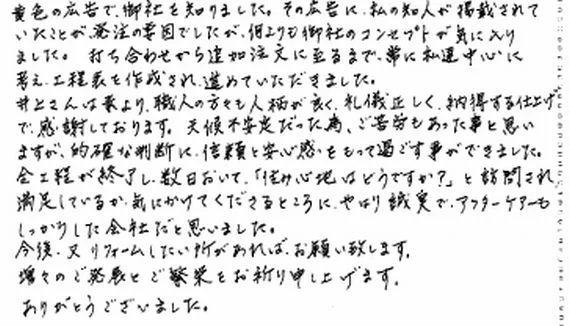 黄色の広告で、御社を知りました。その広告に、私の知人が掲載されて
いたことが、発注の要因でしたが、何よりも御社のコンセプトが気に入り
ました。 打ち合わせから追加注文に至るまで、常に私達中心に
考え、工程表を作成され、進めていただきました。
井上さんは素より、職人の方々も人柄が良く、礼儀正しく、納得する仕上げ
で、感謝しております。天候不安定だった為、ご苦労もあった事と思い
ますが、的確な判断に、信頼と安心感をもって過ごす事ができました。
全工程が終了し、数日おいて、「住み心地はどうですか?」と訪問され、
満足しているか、気にかけてくださるところに、やはり誠実で、アフターケアーも
しっかりした会社だと思いました。
今後、又リフォームしたい所があれば、お願い致します。
増々のご発展とご繁栄をお祈り申し上げます。
ありがとうございました。